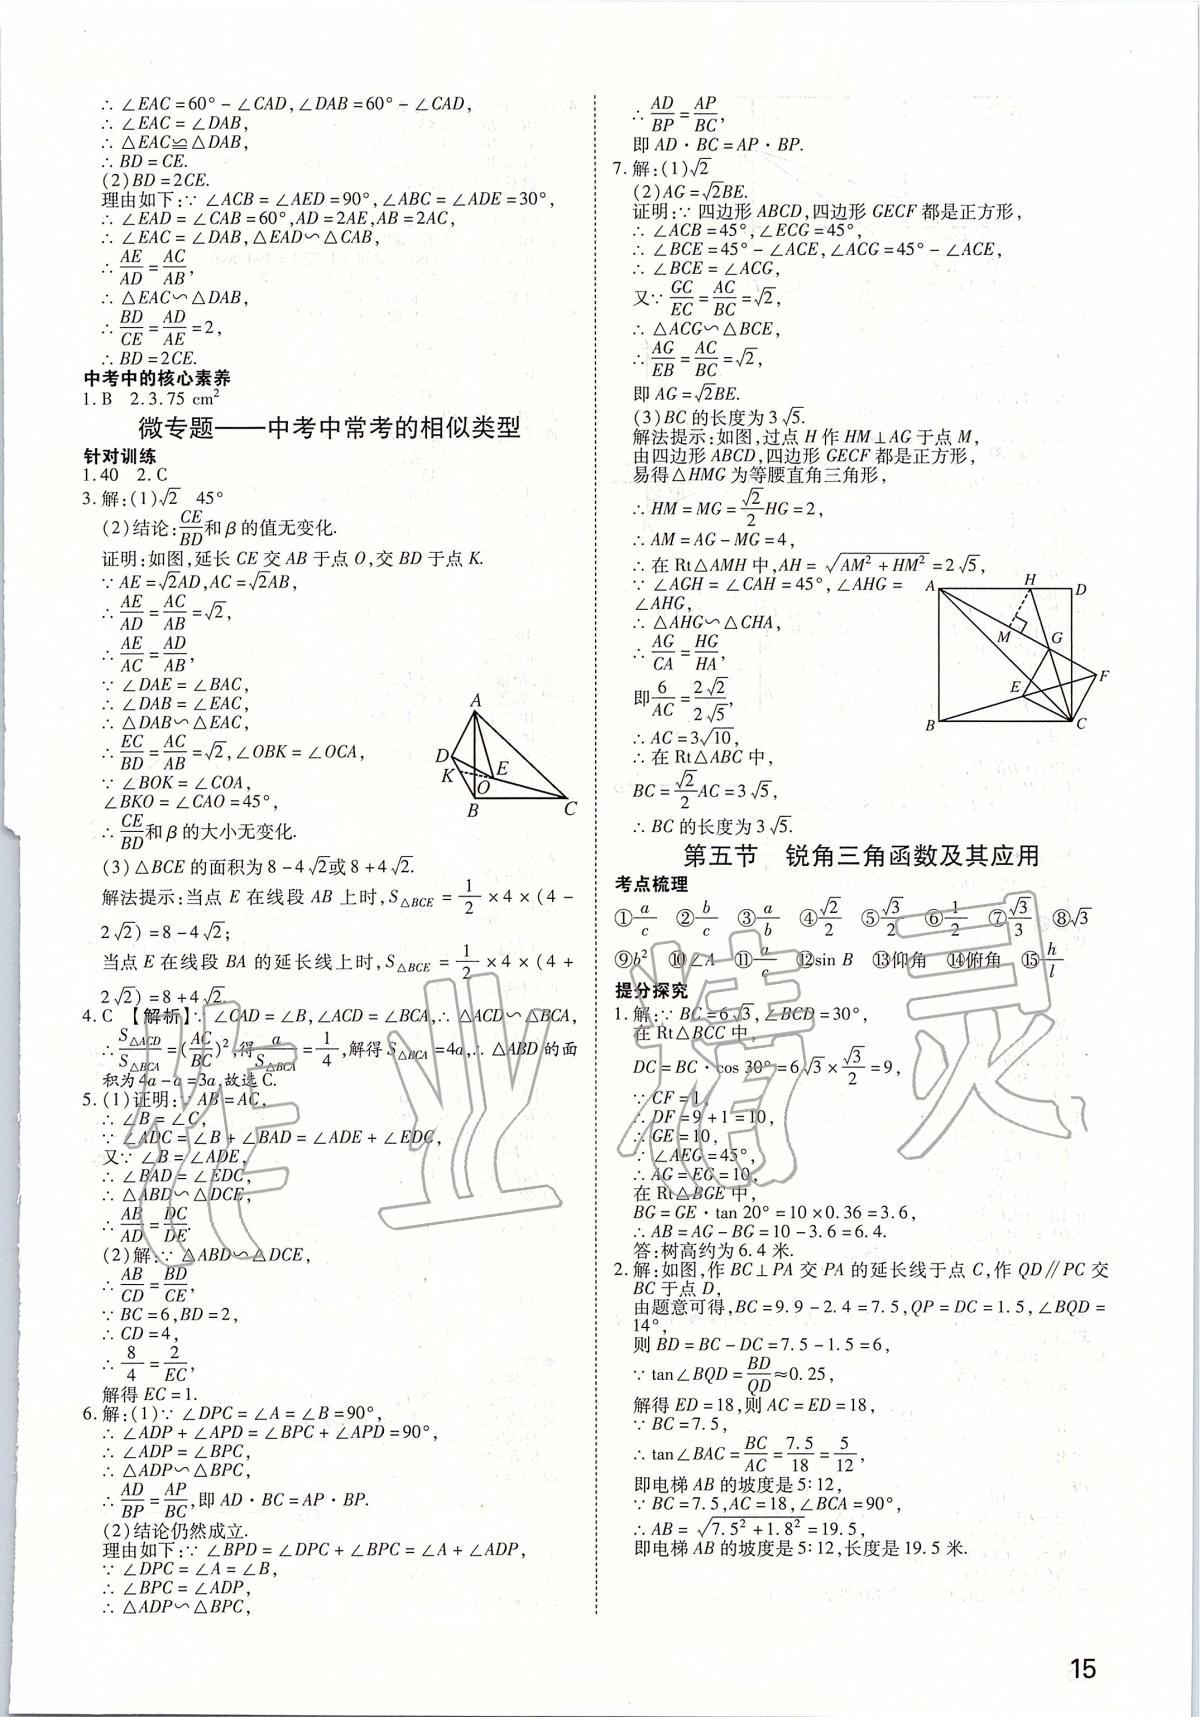 ∴ ∠EAC = 60° - ∠CAD, ∠DAB = 60° - ∠CAD,
∴ ∠EAC = ∠DAB,
∴ △EAC≌△DAB,
∴ BD = CE.
(2) BD = 2CE.
理由如下:∵ ∠ACB = ∠AED = 90°, ∠ABC = ∠ADE = 30°,
∴ ∠EAD = ∠CAB = 60°, AD = 2AE, AB = 2AC,
∴ ∠EAC = ∠DAB, △EAD∽△CAB,
∴ AE/AD = AC/AB,
∴ △EAC∽△DAB,
∴ BD/CE = AD/AE = 2,
∴ BD = 2CE.
中考中的核心素养
1. B 2. 3.75 cm²
微专题——中考中常考的相似类型
针对训练
1. 40 2. C
3. 解:(1)√2 45°
(2)结论:CE/BD和β的值无变化.
证明:如图,延长 CE 交 AB 于点 O,交 BD 于点 K.
∵ AE = √2AD, AC = √2AB,
∴ AE/AD = AC/AB = √2,
∴ AE/AC = AD/AB,
∵ ∠DAE = ∠BAC,
∴ ∠DAB = ∠EAC,
∴ △DAB∽△EAC,
∴ EC/BD = AC/AB = √2, ∠OBK = ∠OCA,
∵ ∠BOK = ∠COA,
∠BKO = ∠CAO = 45°,
∴ CE/BD和β的大小无变化.
A
D
K
E
O
B
C
(3) △BCE 的面积为 8 - 4√2或 8 + 4√2.
解法提示:当点 E 在线段 AB 上时, S△BCE = 1/2 × 4 × (4 -
2√2) = 8 - 4√2;
当点 E 在线段 BA 的延长线上时, S△BCE = 1/2 × 4 × (4 +
2√2) = 8 + 4√2.
4. C 【解析】∵ ∠CAD = ∠B, ∠ACD = ∠BCA, ∴ △ACD∽△BCA,
∴ S△ACD/S△BCA = (AC/BC)², 得 a/S△BCA = 1/4, 解得 S△BCA = 4a, ∴ △ABD 的面
积为 4a - a = 3a, 故选 C.
5. (1)证明:∵ AB = AC,
∴ ∠B = ∠C,
∵ ∠ADC = ∠B + ∠BAD = ∠ADE + ∠EDC,
又∵ ∠B = ∠ADE,
∴ ∠BAD = ∠EDC,
∴ △ABD∽△DCE,
∴ AB/AD = DC/DE.
(2)解:∵ △ABD∽△DCE,
∴ AB/CD = BD/CE,
∵ BC = 6, BD = 2,
∴ CD = 4,
∴ 8/4 = 2/EC,
解得 EC = 1.
6. 解:(1)∵ ∠DPC = ∠A = ∠B = 90°,
∴ ∠ADP + ∠APD = ∠BPC + ∠APD = 90°,
∴ ∠ADP = ∠BPC,
∴ △ADP∽△BPC,
∴ AD/BP = AP/BC, 即 AD · BC = AP · BP.
(2)结论仍然成立.
理由如下:∵ ∠BPD = ∠DPC + ∠BPC = ∠A + ∠ADP,
∵ ∠DPC = ∠A = ∠B,
∴ ∠BPC = ∠ADP,
∴ △ADP∽△BPC,
∴ AD/BP = AP/BC,
即 AD · BC = AP · BP.
7. 解:(1)√2
(2) AG = √2BE.
证明:∵ 四边形 ABCD, 四边形 GECF 都是正方形,
∴ ∠ACB = 45°, ∠ECG = 45°,
∴ ∠BCE = 45° - ∠ACE, ∠ACG = 45° - ∠ACE,
∴ ∠BCE = ∠ACG,
又∵ GC/EC = AC/BC = √2,
∴ △ACG∽△BCE,
∴ AG/EB = AC/BC = √2,
即 AG = √2BE.
(3) BC 的长度为 3√5.
解法提示:如图,过点 H 作 HM⊥AG 于点 M,
由四边形 ABCD, 四边形 GECF 都是正方形,
易得△HMG 为等腰直角三角形,
∴ HM = MG = √2/2 HG = 2,
∴ AM = AG - MG = 4,
∴ 在 Rt△AMH 中, AH = √(AM² + HM²) = 2√5,
∵ ∠AGH = ∠CAH = 45°, ∠AHG =
∠AHG,
∴ △AHG∽△CHA,
∴ AG/CA = HG/HA,
即 6/AC = 2√2/2√5,
∴ AC = 3√10,
∴ 在 Rt△ABC 中,
BC = √2/2 AC = 3√5,
∴ BC 的长度为 3√5.
A
H
D
M
G
F
E
B
C
第五节 锐角三角函数及其应用
考点梳理
①a/c ②b/c ③a/b ④√2/2 ⑤√3/2 ⑥1/2 ⑦√3/3 ⑧√3
⑨b² ⑩∠A ⑪a/c ⑫sin B ⑬仰角 ⑭俯角 ⑮h/l
提分探究
1. 解:∵ BC = 6√3, ∠BCD = 30°,
在 Rt△BCC 中,
DC = BC · cos 30° = 6√3 × √3/2 = 9,
∵ CF = 1,
∴ DF = 9 + 1 = 10,
∴ GE = 10,
∴ ∠AEG = 45°,
∴ AG = EG = 10,
在 Rt△BGE 中,
BG = GE · tan 20° = 10 × 0.36 = 3.6,
∴ AB = AG - BG = 10 - 3.6 = 6.4.
答:树高约为 6.4 米.
2. 解:如图,作 BC⊥PA 交 PA 的延长线于点 C, 作 QD∥PC 交
BC 于点 D,
由题意可得, BC = 9.9 - 2.4 = 7.5, QP = DC = 1.5, ∠BQD =
14°,
则 BD = BC - DC = 7.5 - 1.5 = 6,
∵ tan∠BQD = BD/QD ≈ 0.25,
解得 ED = 18, 则 AC = ED = 18,
∵ BC = 7.5,
∴ tan∠BAC = BC/AC = 7.5/18 = 5/12,
即电梯 AB 的坡度是 5∶12,
∵ BC = 7.5, AC = 18, ∠BCA = 90°,
∴ AB = √(7.5² + 1.8²) = 19.5,
即电梯 AB 的坡度是 5∶12, 长度是 19.5 米.
作业精灵
15